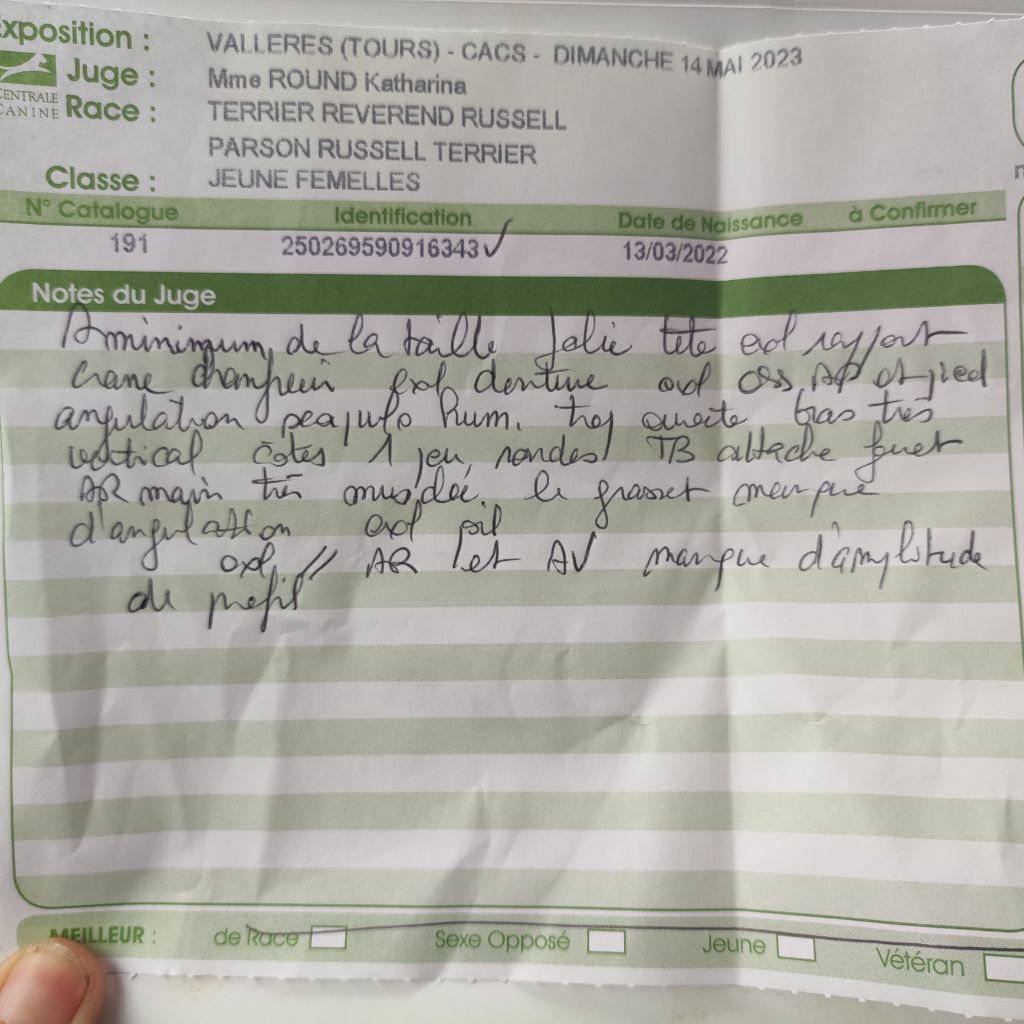 Exposition : VALLERES (TOURS) - CACS - DIMANCHE 14 MAI 2023
CENTRALE Juge : Mme ROUND Katharina
CANINE Race : TERRIER REVEREND RUSSELL
PARSON RUSSELL TERRIER
Classe : JEUNE FEMELLES
N° Catalogue Identification Date de Naissance à Confirmer
191 250269590916343 ✓ 13/03/2022
Notes du Juge
A minimum de la taille Jolie tete exl rapport
crane chanfrein exl denture exl oss, AP et pied
angulation hum. très bras très
vertical côtes 1 peu rondes TB attache fouet
AR main très musclée. le grasset manque
d'angulation exl poil
exl // AR et AV manque d'amplitude
de profil
MEILLEUR : de Race Sexe Opposé Jeune Vétéran